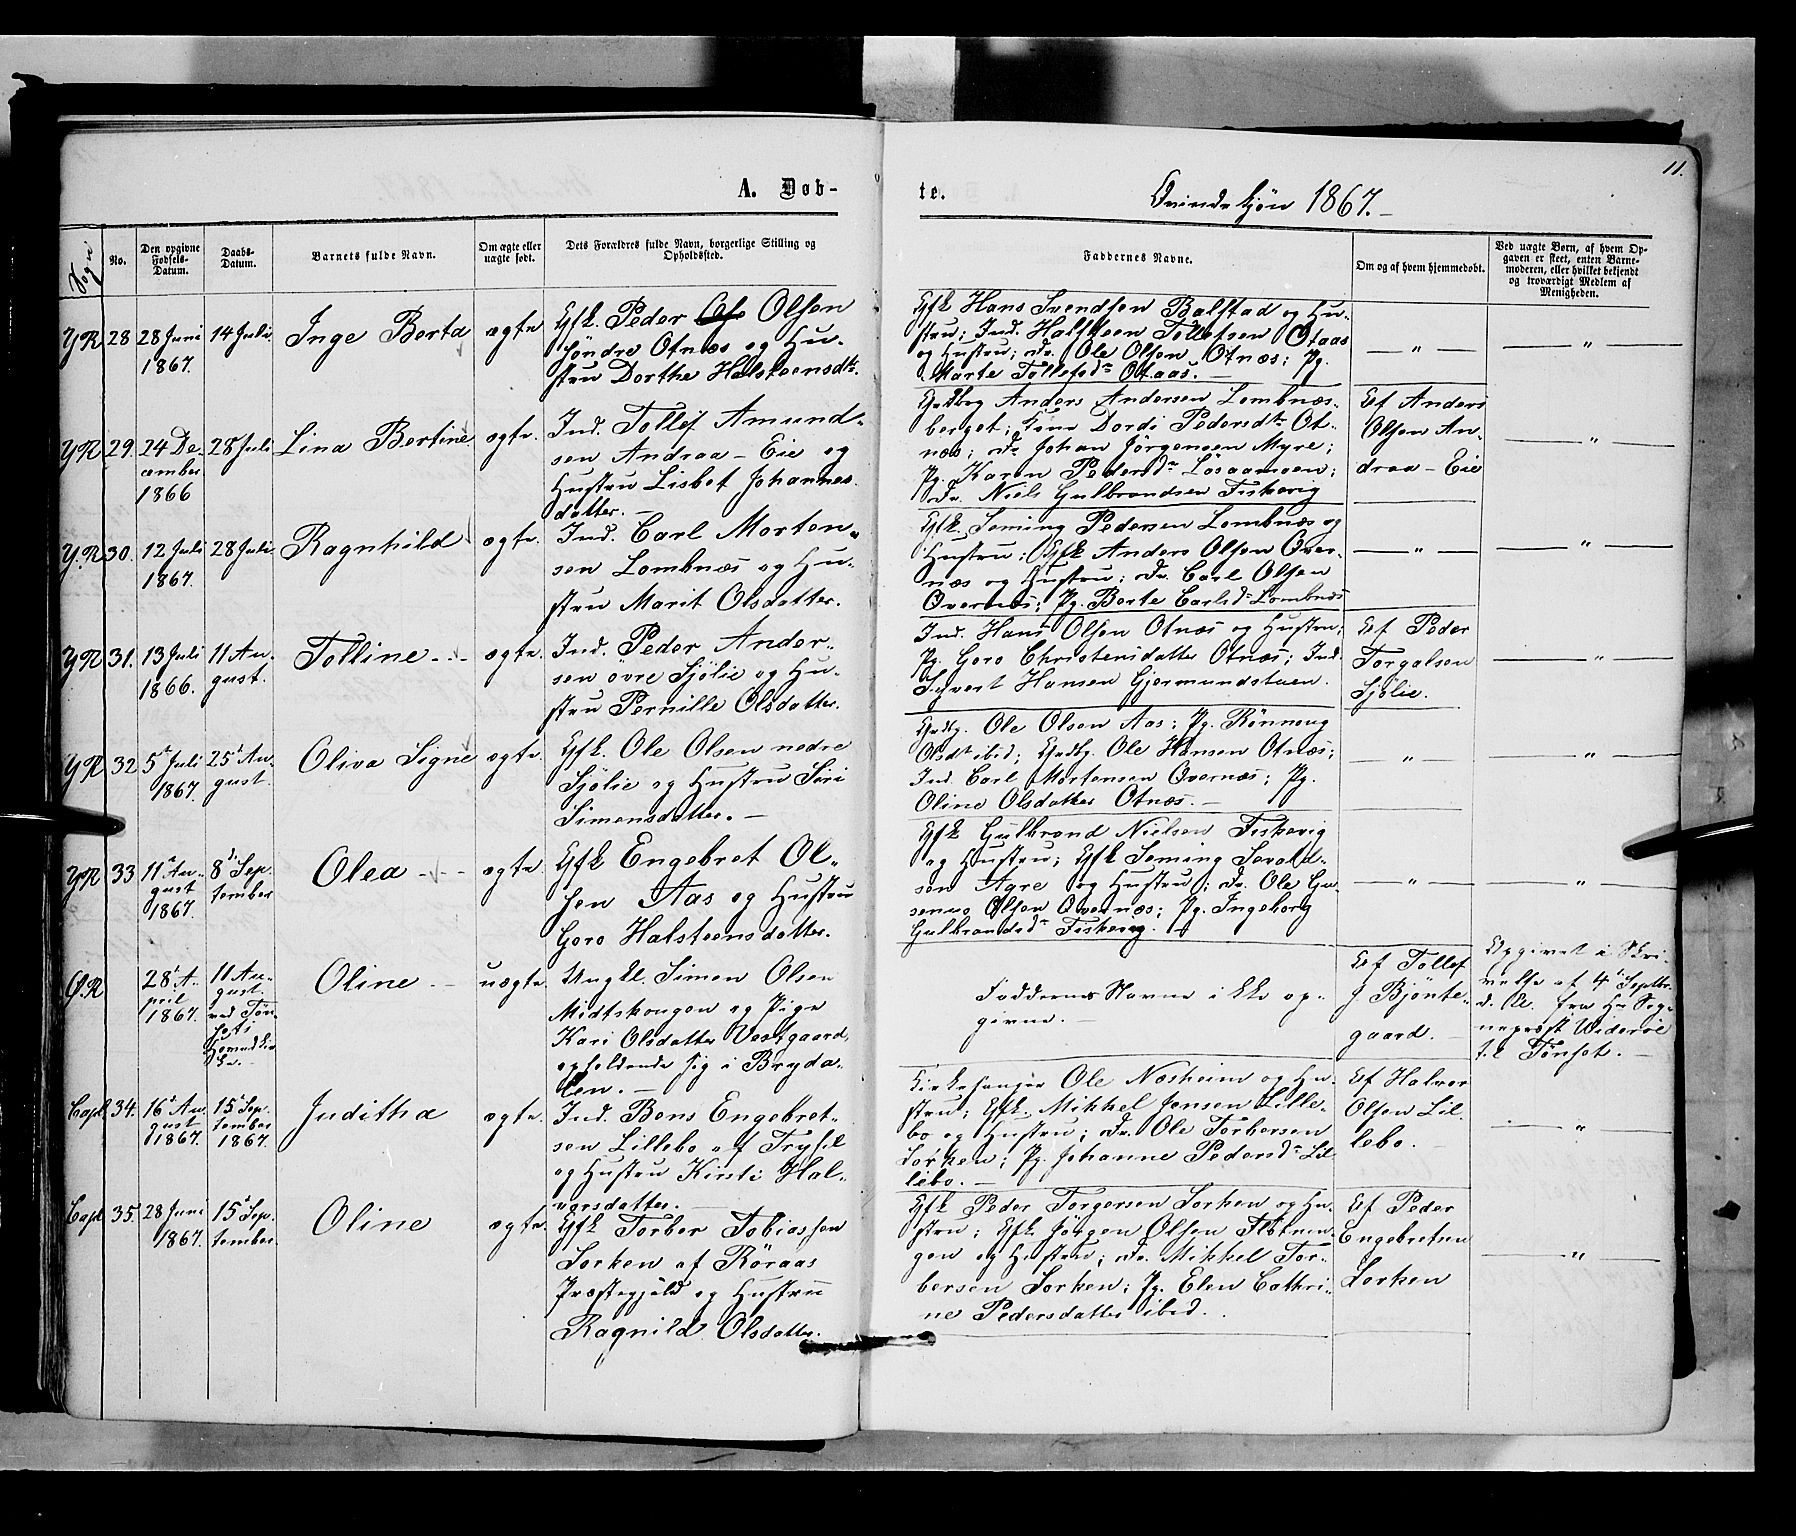 11.
A. Døb-
te.
Qvindekjøn 1867.
Sogn
No.
Den opgivne Fødsels-Datum.
Daabs-Datum.
Barnets fulde Navn.
Om ægte eller uægte født.
Dets Forældres fulde Navn, borgerlige Stilling og Opholdssted.
Faddernes Navne.
Om og af hvem hjemmedøbt.
Ved uægte Børn, af hvem Opgaven er skeet, enten Barnemoderen, eller hvilket bekjendt og troværdigt Medlem af Menigheden.
Y.R 28 28 Juni 1867. 14 Juli Inge Berta ægte
Gfk. Peder Olsen
søndre Otnæs og Hu-
stru Dorthe Halsteensdtr.
Gfk Hans Svendsen Balstad og Hu-
stru; Ind. Halsteen Tollefsen Otaas
og Hustru; Dr. Ole Olsen Otnæs; Pg.
Marte Tollefsdr Otaas.
— " — — " —
Y.R 29. 24 December 1866 28 Juli Lina Bertine ægte.
Ind. Tollef Amund-
sen Andraa-Eie og
Hustru Lisbet Johannes
datter. —
Gudbg Anders Andersen Lombnæs-
berget; Kone Dordi Pedersdtr Ot-
næs; Dr. Johan Jörgensen Myre;
Pg. Karen Pedersdr Lösaamoen;
Dr. Niels Gulbrandsen Fiskevig
Ef Anders
Olsen An-
draa-Eie
— " —
Y.R 30. 12 Juli 1867. 28 Juli. Ragnhild ægte.
Ind. Carl Morten-
sen Lombnæs og Hu-
stru Marit Olsdatter.
Gfk. Seming Pedersen Lombnæs og
Hustru; Gfk Anders Olsen Över-
næs og Hustru; Dr. Carl Olsen
Övernæs; Pg. Berte Carlsdr Lombnæs
— " — — " —
Y.R 31. 13 Juli 1866. 11 August. Tolline ægte.
Ind. Peder Ander-
sen övre Sjölie og Hu-
stru Pernille Olsdatter.
Ind. Hans Olsen Otnæs og Hustru;
Pg. Goro Christensdatter Otnæs; Ind.
Syvert Hansen Gjermundstuen.
Ef Peder
Torgalsen
Sjölie.
— " —
Y.R 32 5te Juli 1867. 25de August. Oliva Signe ægte.
Gfk. Ole Olsen nedre
Sjölie og Hustru Siri
Simensdatter. —
Gudbg. Ole Olsen Aas; Pg. Rönnoug
Olsdtr ibid; Gudbg. Ole Hansen Otnæs;
Ind Carl Mortensen Övernæs; Pg.
Oline Olsdatter Otnæs. —
— " — — " —
Y.R 33 11te August 1867. 8de September Olea ægte.
Gfk Engebret Ol-
sen Aas og Hustru
Goro Halsteensdatter.
Gfk Gulbrand Nielsen Fiskevig
og Hustru; Gfk Seming Sevald-
sen Agre og Hustru; Dr. Ole Gu-
senus Olsen Övernæs; Pg. Ingeborg
Gulbrandsdr Fiskevig. —
— " — — " —
Ö.R 28de April 1867. 11 August. ved Tönsets Hovedkirke. Oline uægte.
Ungkl. Simen Olsen
Midtskougen og Pige
Kari Olsdatter Vestgaard,
opholdende sig i Bryda-
len. —
Faddernes Navne ikke op-
givne. —
Ef Tollef
J. Bjönte-
gaard. —
Opgivet i Skri-
velse af 4de Septbr.
d. A. fra Hr Sog-
nepræst Wideröe
til Tönset. —
Capl. 34. 16de August 1867. 15de September 1867. Juditha ægte.
Ind. Bens Engebret-
sen Lillebo af Trysil
og Hustru Kirsti Hal-
vorsdatter.
Kirkesanger Ole Næsheim og Hu-
stru; Gfk. Mikkel Jensen Lille-
bo og Hustru; Dr. Ole Torbersen
Sorken; Pg. Johanne Pedersdr Lil
lebo. —
Ef Halvor
Olsen Lil
lebo.
— " —
Capl 35. 28 Juni 1867. 15de September. Oline ægte.
Gfk Torber Tobiassen
Sorken af Röraas
Præstegjæld og Hustru
Ragnild Olsdatter.
Gfk Peder Torgersen Sorken og Hu-
stru; Gfk Jörgen Olsen Flötnin-
gen og Hustru; Dr. Mikkel Tor-
bersen Sorken; Pg. Elen Cathri-
ne Pedersdatter ibid.
Ef Peder
Engebretsen
Sorken
— " —